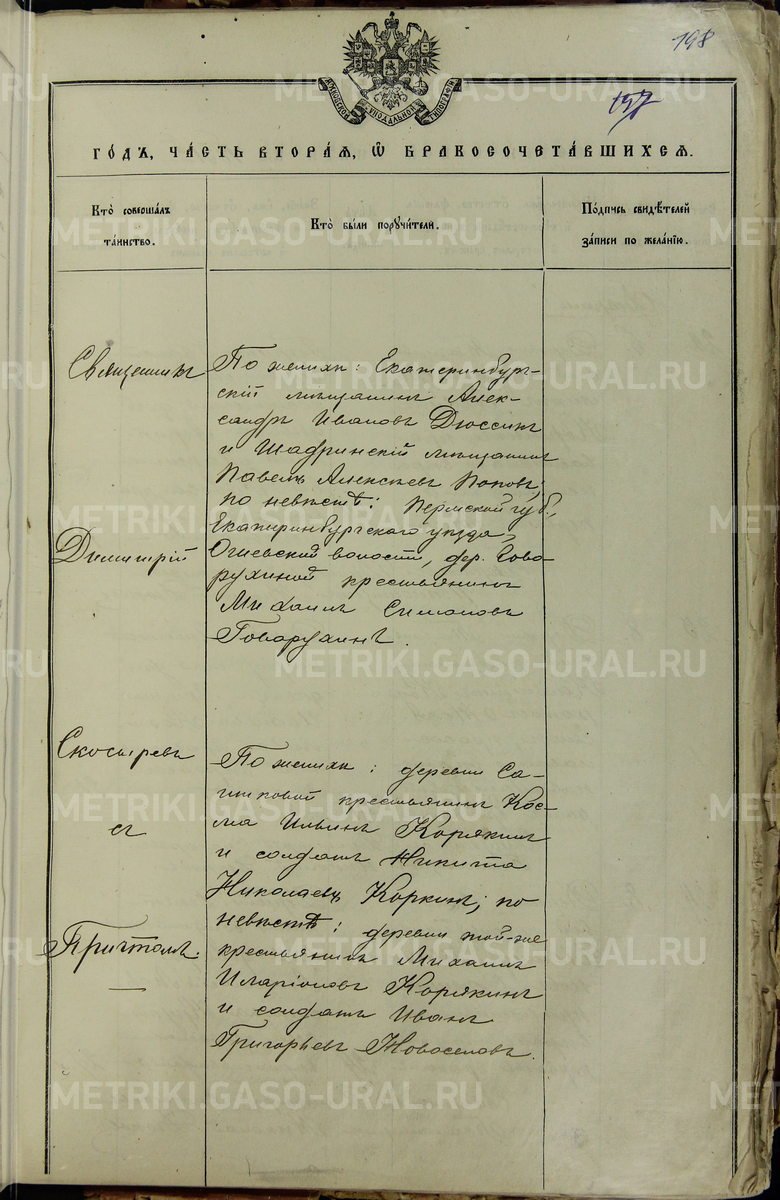 198
197
МОСКОВСКОЙ СѴНОДАЛЬНОЙ ТИПОГРАФІИ
ГО́ДЪ, ЧА́СТЬ ВТОРА́Я, Ѡ БРАКОСОЧЕТА́ВШИХСЯ.
Кто̀ соверша́лъ
та́инство.
Кто̀ бы́ли поручи́тели.
По́дпись свидѣ́телей
за́писи по жела́нїю.
Священникъ
Димитрій
Скосыревъ
съ
Причтомъ.
По женихѣ: Екатеринбург-
скій мѣщанинъ Алек-
сандръ Ивановъ Дюссинъ
и Шадринскій мѣщанинъ
Павелъ Алексѣевъ Поповъ;
по невѣстѣ: Пермской губ.,
Екатеринбургскаго уѣзда,
волости, дер. Гово-
рухиной крестьянинъ
Михаилъ Симоновъ
Говорухинъ.
По женихѣ: деревни Са-
крестьянинъ Кос-
ма Ильинъ Корякинъ
и солдатъ Никита
Николаевъ Коркинъ; по
невѣстѣ: деревни той-же
крестьянинъ Михаилъ
Иларіоновъ Корякинъ
и солдатъ Иванъ
Григорьевъ Новоселовъ.
METRIKI.GASO-URAL.RU